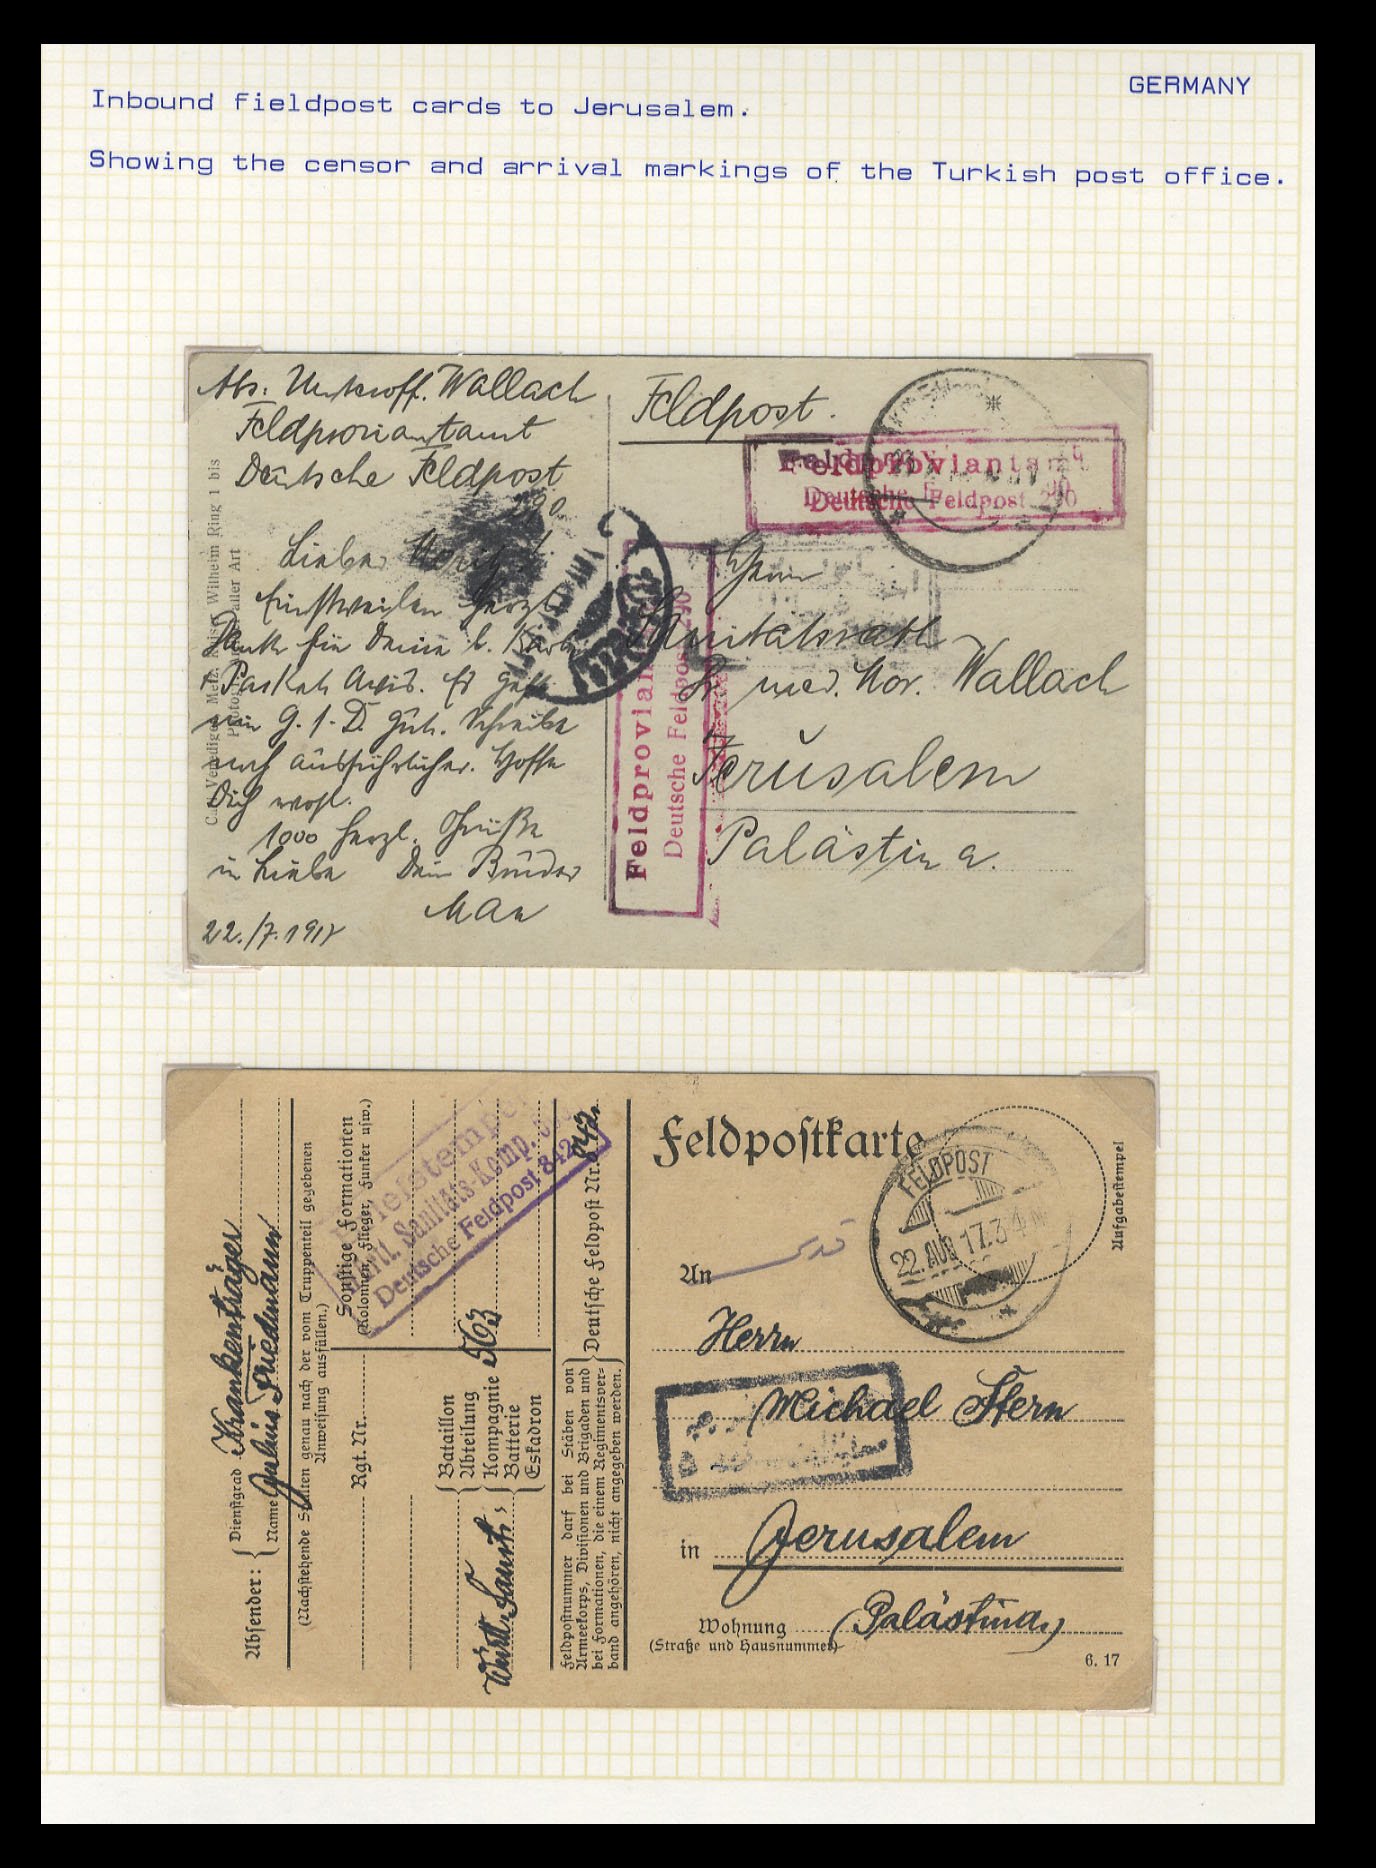 GERMANY
Inbound fieldpost cards to Jerusalem.
Showing the censor and arrival markings of the Turkish post office.
Abs: Unteroff. Wallach
Feldproviantamt
Deutsche Feldpost
290.
Lieber
Einstweilen herzl.
Dank für Deine l. Karte
Paket Avis. Es geht
mir G. s. D. gut. Schreibe
noch ausführlicher. Hoffe
Dich wohl.
1000 herzl. Grüße
in Liebe Dein Bruder
Max
22./7.1917
Wilhelm Ring 1 bis
aller Art
Feldpost.
Feldproviantamt
Deutsche Feldpost 290
Feldproviant
Deutsche Feldpost 290
Herrn
Sanitätsrath
Dr. med. Mor. Wallach
Jerusalem
Palästina.
Feldpostkarte
FELDPOST
22. AUG 17. 3-4 N
Aufgabestempel
An
قدس
Herrn
Michael Stern
in Jerusalem
Wohnung (Palästina)
(Straße und Hausnummer)
6. 17
Absender:
Dienstgrad Krankenträger
Name Julius Friedmann
(Nachstehende Spalten genau nach der vom Truppenteil gegebenen
Anweisung ausfüllen.)
Sonstige Formationen
(Kolonnen, Flieger, Funker usw.)
Rgt. Nr.
Bataillon
Abteilung
Kompagnie 563
Batterie
Eskadron
Württ. Sanit.
Briefstempel
Württ. Sanitäts-Komp.
Deutsche Feldpost 842
Feldpostnummer darf bei Stäben von
Armeekorps, Divisionen und Brigaden und
bei Formationen, die einem Regimentsver-
band angehören, nicht angegeben werden.
Deutsche Feldpost Nr. 842.